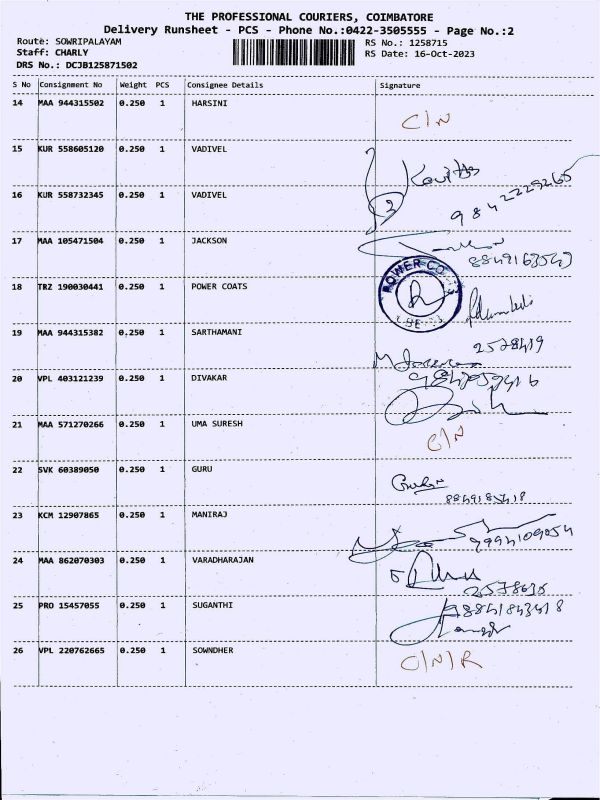 THE PROFESSIONAL COURIERS, COIMBATORE
Delivery Runsheet - PCS - Phone No.:0422-3505555 - Page No.:2
Route: SOWRIPALAYAM RS No.: 1258715
Staff: CHARLY RS Date: 16-Oct-2023
DRS No.: DCJB125871502
S No Consignment No Weight PCS Consignee Details Signature
14 MAA 944315502 0.250 1 HARSINI
C/N
15 KUR 558605120 0.250 1 VADIVEL
16 KUR 558732345 0.250 1 VADIVEL
9842229265
17 MAA 105471504 0.250 1 JACKSON
8849163549
18 TRZ 190030441 0.250 1 POWER COATS
POWER CO
19 MAA 944315382 0.250 1 SARTHAMANI
2578419
20 VPL 403121239 0.250 1 DIVAKAR
21 MAA 571270266 0.250 1 UMA SURESH
C/N
22 SVK 60389050 0.250 1 GURU
23 KCM 12907865 0.250 1 MANIRAJ
9994109054
24 MAA 862070303 0.250 1 VARADHARAJAN
2578636
25 PRO 15457055 0.250 1 SUGANTHI
26 VPL 220762665 0.250 1 SOWNDHER
C/N/R